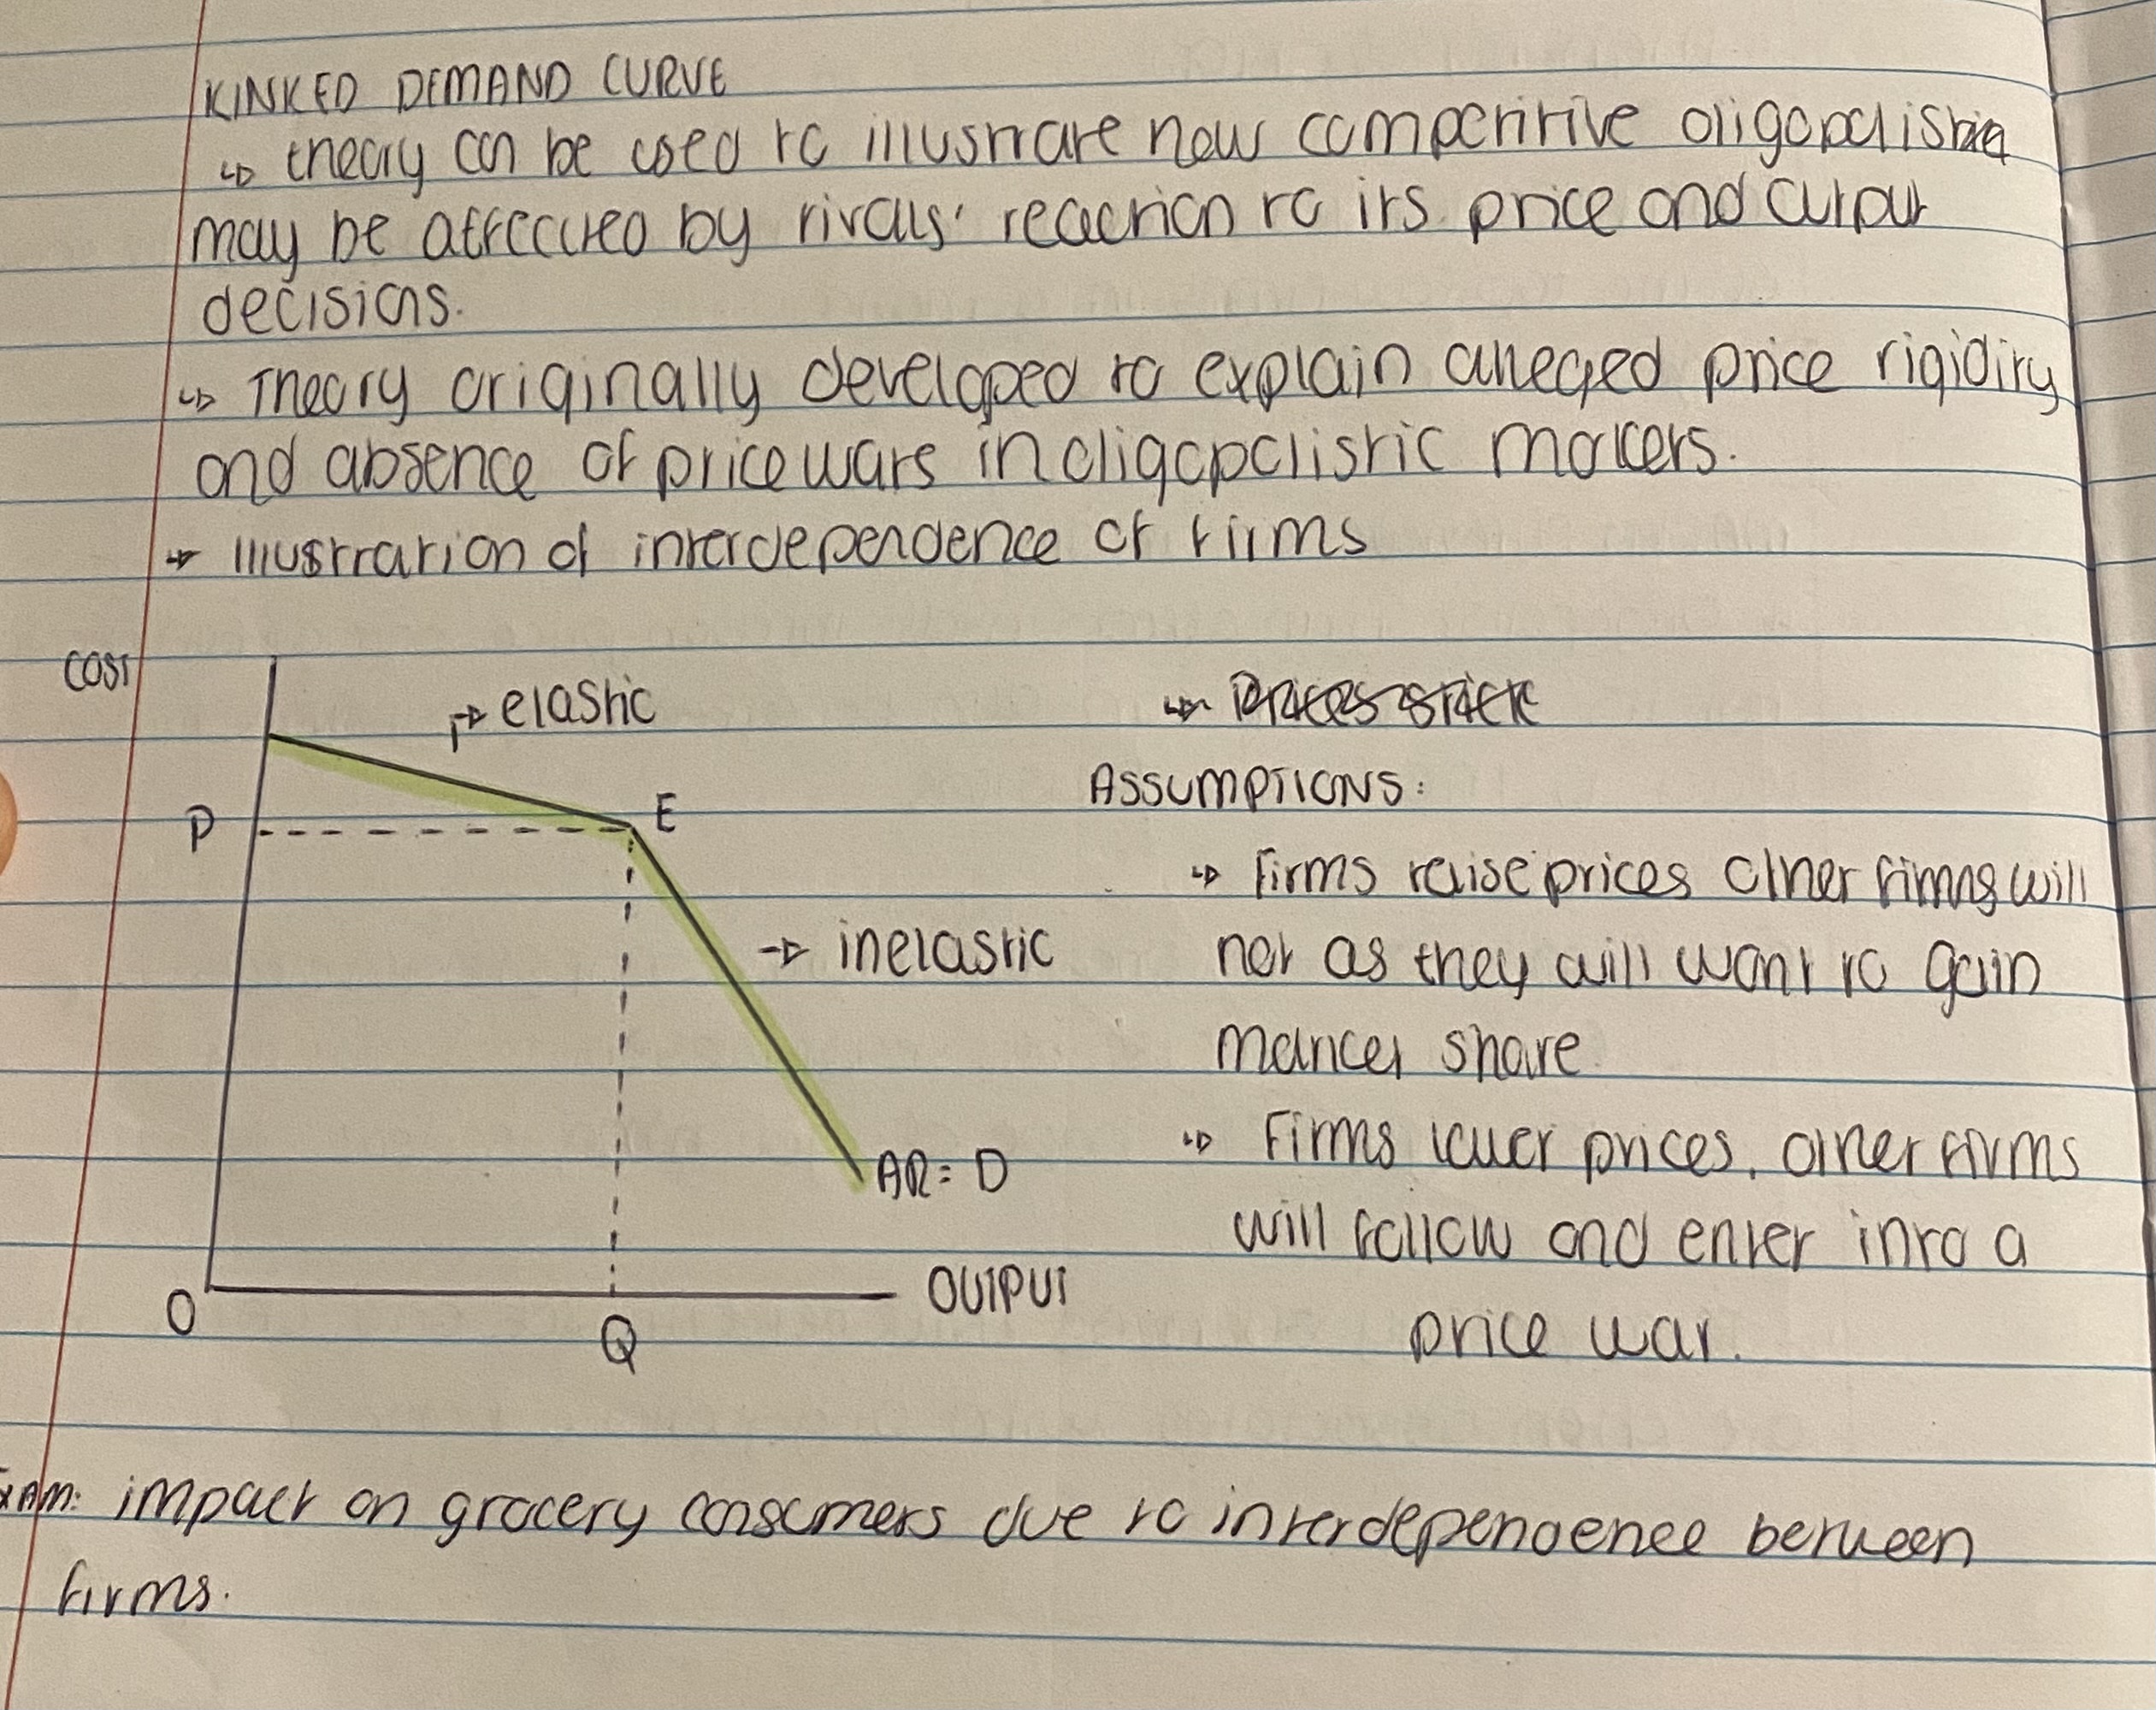 KINKED DEMAND CURVE
↳ theory can be used to illustrate how competitive oligopolistic
may be affected by rivals' reaction to its price and output
decisions.
↳ Theory originally developed to explain alleged price rigidity
and absence of price wars in oligopolistic markets.
→ Illustration of interdependence of firms
COST
→ elastic
↳ Prices stick
ASSUMPTIONS:
P
E
↳ Firms raise prices other firms will
→ inelastic
not as they will want to gain
market share
↳ Firms lower prices, other firms
AR = D
will follow and enter into a
OUTPUT
O
Q
price war.
EXAM: impact on grocery consumers due to interdependence between
firms.